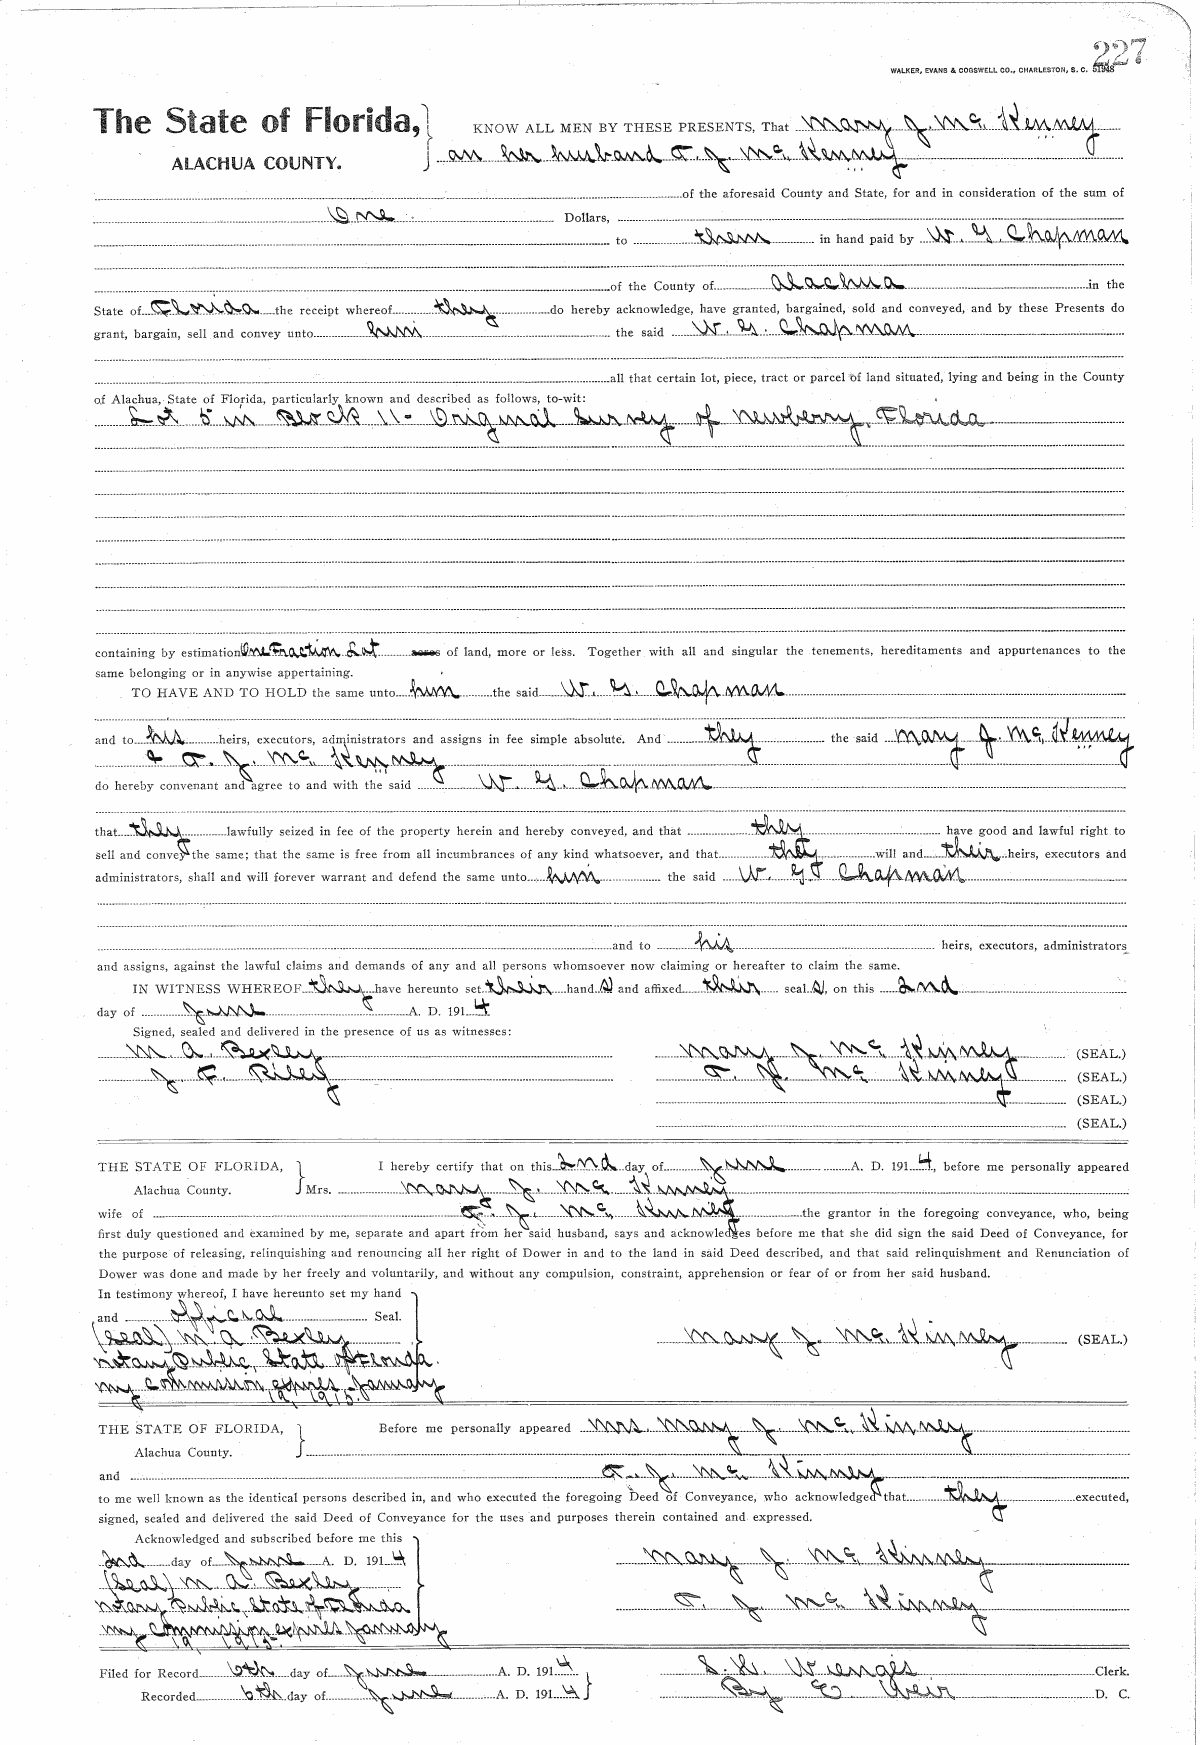 227
WALKER, EVANS & COGSWELL CO., CHARLESTON, S. C. 51948
The State of Florida,
ALACHUA COUNTY.
KNOW ALL MEN BY THESE PRESENTS, That Mary J. Mc. Kenney
an her husband T. J. Mc. Kenney
of the aforesaid County and State, for and in consideration of the sum of
One Dollars,
to them in hand paid by W. G. Chapman
of the County of Alachua in the
State of Florida the receipt whereof they do hereby acknowledge, have granted, bargained, sold and conveyed, and by these Presents do
grant, bargain, sell and convey unto him the said W. G. Chapman
all that certain lot, piece, tract or parcel of land situated, lying and being in the County
of Alachua, State of Florida, particularly known and described as follows, to-wit:
Lot 5 in Block 11- Original Survey of Newberry, Florida
containing by estimation One Fraction Lot acres of land, more or less. Together with all and singular the tenements, hereditaments and appurtenances to the
same belonging or in anywise appertaining.
TO HAVE AND TO HOLD the same unto him the said W. G. Chapman
and to his heirs, executors, administrators and assigns in fee simple absolute. And they the said Mary J. Mc. Kenney
& T. J. Mc. Kenney
do hereby convenant and agree to and with the said W. G. Chapman
that they lawfully seized in fee of the property herein and hereby conveyed, and that they have good and lawful right to
sell and convey the same; that the same is free from all incumbrances of any kind whatsoever, and that they will and their heirs, executors and
administrators, shall and will forever warrant and defend the same unto him the said W. G. Chapman
and to his heirs, executors, administrators
and assigns, against the lawful claims and demands of any and all persons whomsoever now claiming or hereafter to claim the same.
IN WITNESS WHEREOF they have hereunto set their hand s and affixed their seal s, on this 2nd
day of June A. D. 1914
Signed, sealed and delivered in the presence of us as witnesses:
M. A. Bexley Mary J. Mc. Kinney (SEAL.)
J. F. Riley T. J. Mc Kinney (SEAL.)
(SEAL.)
(SEAL.)
THE STATE OF FLORIDA, I hereby certify that on this 2nd day of June A. D. 1914, before me personally appeared
Alachua County. Mrs. Mary J. Mc Kinney
wife of T. J. Mc. Kinney the grantor in the foregoing conveyance, who, being
first duly questioned and examined by me, separate and apart from her said husband, says and acknowledges before me that she did sign the said Deed of Conveyance, for
the purpose of releasing, relinquishing and renouncing all her right of Dower in and to the land in said Deed described, and that said relinquishment and Renunciation of
Dower was done and made by her freely and voluntarily, and without any compulsion, constraint, apprehension or fear of or from her said husband.
In testimony whereof, I have hereunto set my hand
and official Seal.
(Seal) M A Bexley Mary J. Mc. Kinney (SEAL.)
Notary Public, State of Florida.
My commission expires January
19, 1915.
THE STATE OF FLORIDA, Before me personally appeared Mrs. Mary J. Mc. Kinney
Alachua County.
and T. J. Mc. Kinney
to me well known as the identical persons described in, and who executed the foregoing Deed of Conveyance, who acknowledged that they executed,
signed, sealed and delivered the said Deed of Conveyance for the uses and purposes therein contained and expressed.
Acknowledged and subscribed before me this
2nd day of June A. D. 1914 Mary J. Mc Kinney
(Seal) M A. Bexley
Notary Public, State of Florida T. J. Mc. Kinney
My commission expires January
19, 1915.
Filed for Record 6th day of June A. D. 1914 S. H. Wienges Clerk.
Recorded 6th day of June A. D. 1914 By E. Weir D. C.